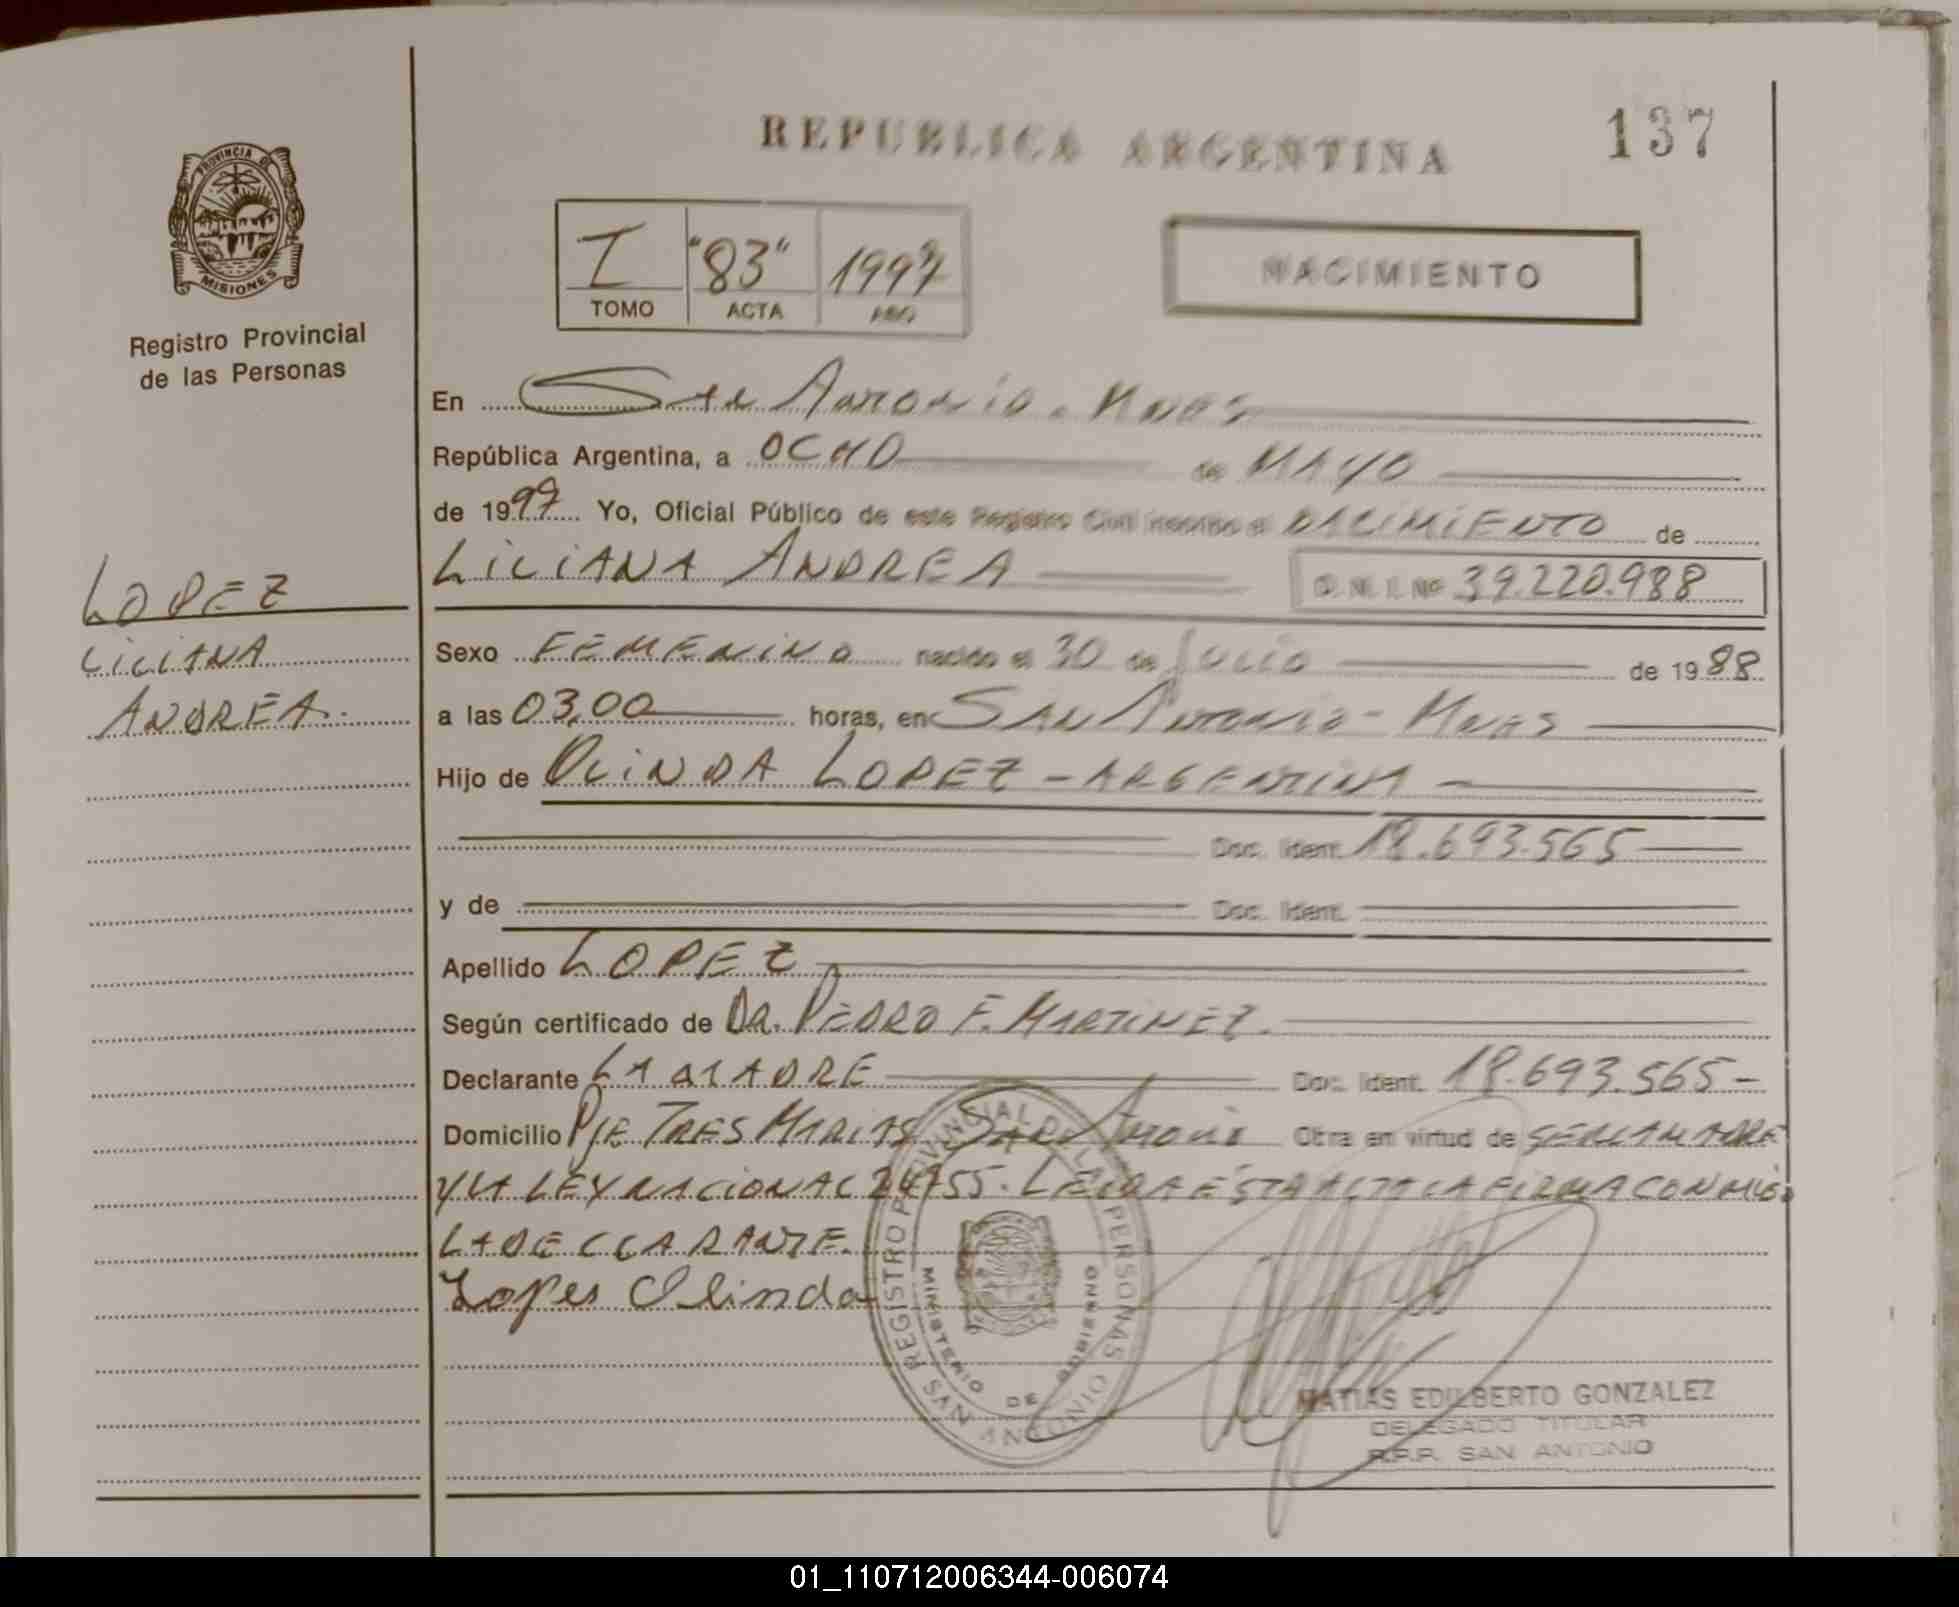 REPUBLICA ARGENTINA
137
PROVINCIA DE MISIONES
Registro Provincial
de las Personas
I "83" 1997
TOMO ACTA AÑO
NACIMIENTO
En San Antonio - Mnes
República Argentina, a OCHO de MAYO
de 1997 Yo, Oficial Público de este Registro Civil inscribo el NACIMIENTO de
LILIANA ANDREA D.N.I. Nº 39.220.988
LOPEZ
LILIANA
ANDREA.
Sexo FEMENINO nacido el 30 de Julio de 1988
a las 03,00 horas, en SAN Antonio - Mnes
Hijo de OLINDA LOPEZ - ARGENTINA
Doc. Ident. 18.693.565
y de Doc. Ident.
Apellido LOPEZ
Según certificado de DR. PEDRO F. MARTINEZ.
Declarante LA MADRE Doc. Ident. 18.693.565-
Domicilio PJE TRES MARIAS San Antonio Obra en virtud de SER LA MADRE
Y LA LEY NACIONAL 24755. LEIDA ESTA ACTA LA FIRMA CONMIGO
LA DECLARANTE.
Lopes Olinda
REGISTRO PROVINCIAL DE LAS PERSONAS
MINISTERIO DE GOBIERNO
SAN ANTONIO
MATIAS EDILBERTO GONZALEZ
DELEGADO TITULAR
R.P.P. SAN ANTONIO
01_110712006344-006074